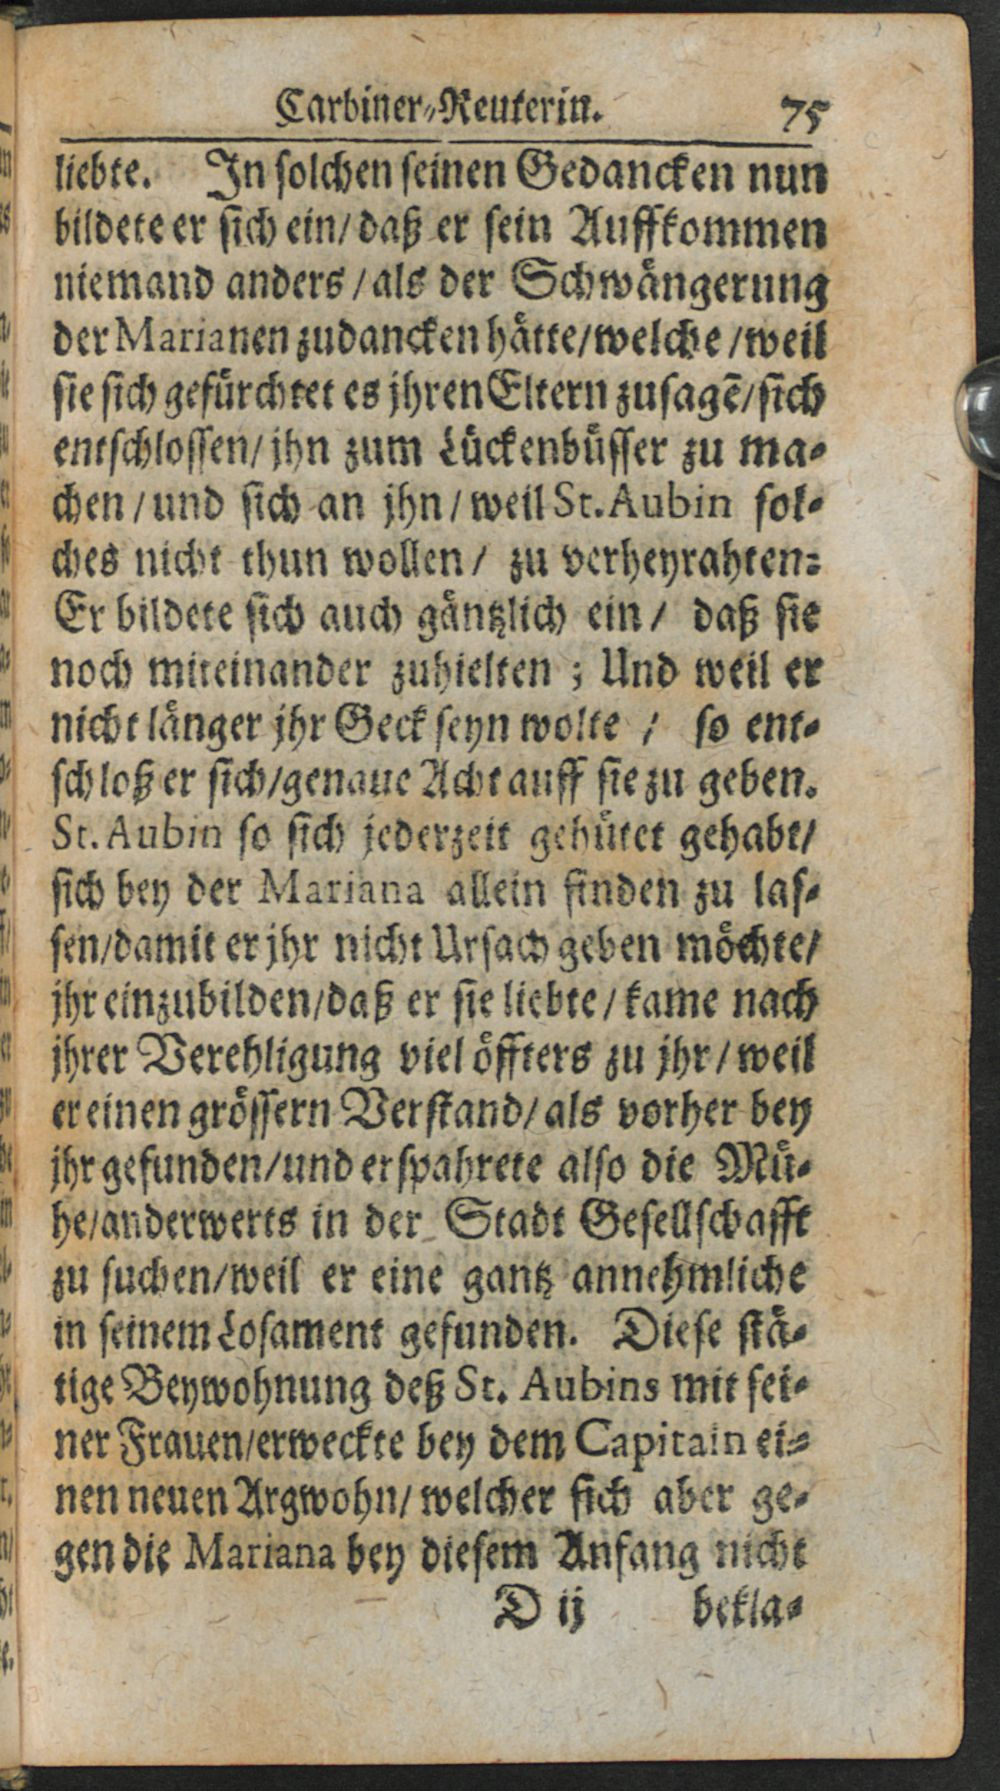 Carbiner-Reuterin. 75
liebte. In solchen seinen Gedancken nun
bildete er sich ein/ daß er sein Auffkommen
niemand anders / als der Schwängerung
der Marianen zudancken hätte/welche /weil
sie sich gefürchtet es jhren Eltern zusagē/sich
entschlossen/ jhn zum Lückenbüsser zu ma-
chen / und sich an jhn / weil St. Aubin sol-
ches nicht thun wollen / zu verheyrahten:
Er bildete sich auch gäntzlich ein / daß sie
noch miteinander zuhielten ; Und weil er
nicht länger jhr Geck seyn wolte / so ent-
schloß er sich/genaue Acht auff sie zu geben.
St. Aubin so sich jederzeit gehütet gehabt/
sich bey der Mariana allein finden zu las-
sen/damit er jhr nicht Ursach geben möchte/
jhr einzubilden/daß er sie liebte / kame nach
jhrer Verehligung viel öffters zu jhr / weil
er einen grössern Verstand/ als vorher bey
jhr gefunden/und erspahrete also die Mü-
he/anderwerts in der Stadt Gesellschafft
zu suchen/weil er eine gantz annehmliche
in seinem Losament gefunden. Diese stä-
tige Beywohnung deß St. Aubins mit sei-
ner Frauen/erweckte bey dem Capitain ei-
nen neuen Argwohn/ welcher sich aber ge-
gen die Mariana bey diesem Anfang nicht
D ij bekla-